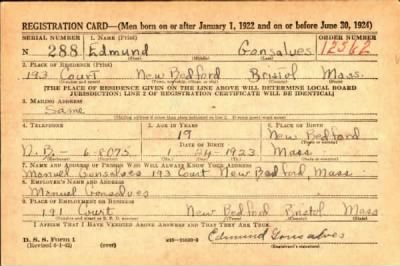 REGISTRATION CARD—(Men born on or after January 1, 1922 and on or before June 30, 1924)
SERIAL NUMBER 1. NAME (Print) ORDER NUMBER
N 288 Edmund Gonsalves 12562
(First) (Middle) (Last)
2. PLACE OF RESIDENCE (Print)
193 Court New Bedford Bristol Mass.
[THE PLACE OF RESIDENCE GIVEN ON THE LINE ABOVE WILL DETERMINE LOCAL BOARD
JURISDICTION; LINE 2 OF REGISTRATION CERTIFICATE WILL BE IDENTICAL]
3. MAILING ADDRESS
Same
4. TELEPHONE 5. AGE IN YEARS 6. PLACE OF BIRTH
19 New Bedford
DATE OF BIRTH
N.B. 6-8075 1923 Mass.
7. NAME AND ADDRESS OF PERSON WHO WILL ALWAYS KNOW YOUR ADDRESS
Manuel Gonsalves 193 Court New Bedford Mass
8. EMPLOYER'S NAME AND ADDRESS
Manuel Gonsalves
9. PLACE OF EMPLOYMENT OR BUSINESS
191 Court New Bedford Bristol Mass
I AFFIRM THAT I HAVE VERIFIED ABOVE ANSWERS AND THAT THEY ARE TRUE.
D. S. S. Form 1 Edmund Gonsalves
(Revised 6-1-42) (Registrant's signature)